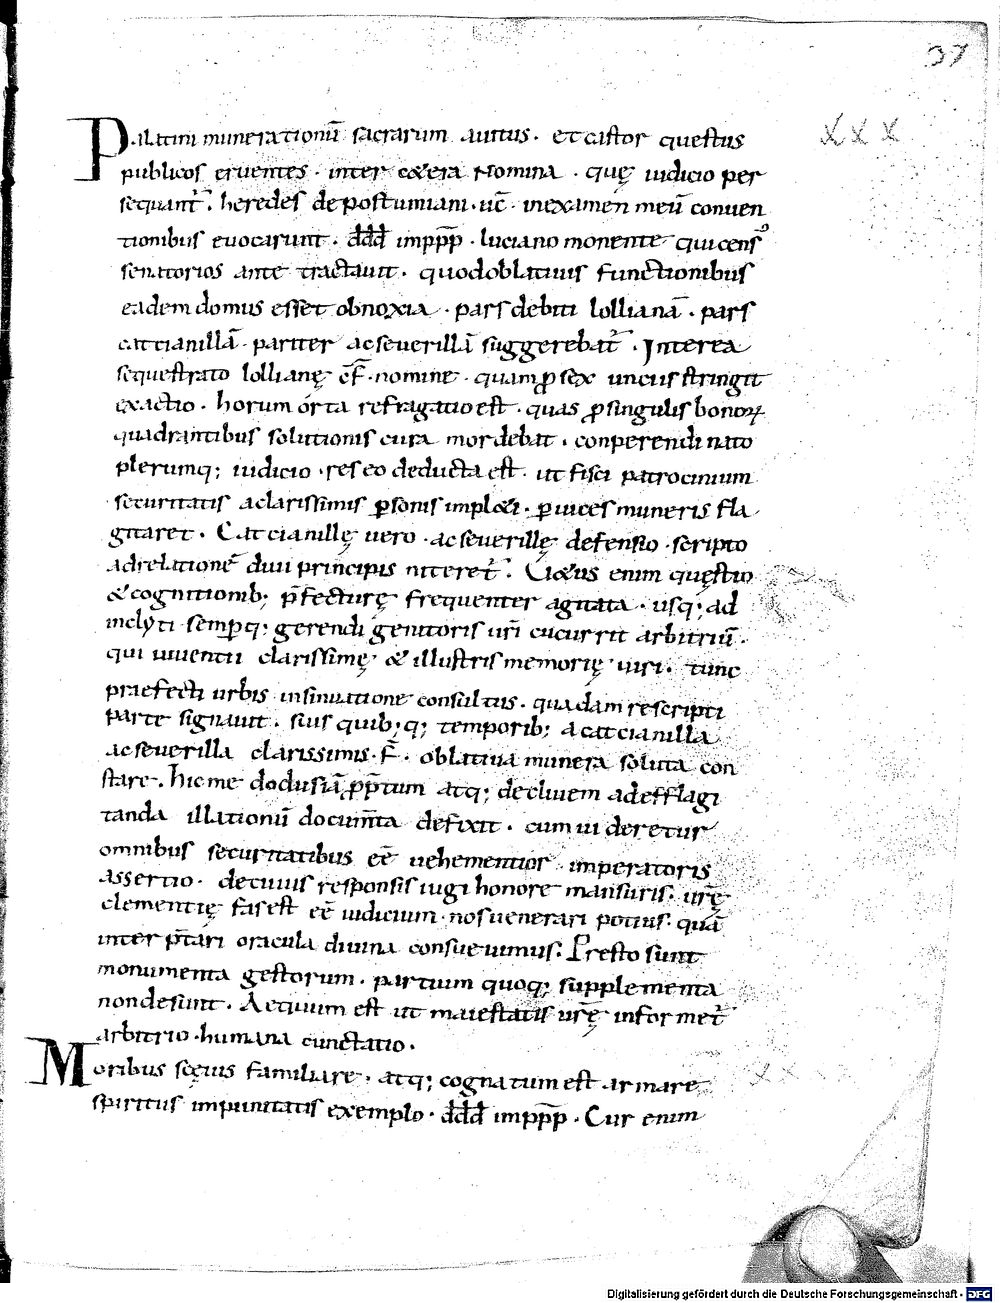 37
XXX
Palatini munerationū sacrarum auitus · et castor questus
publicos eruentes · inter cetera Nomina · quę iudicio per
sequant̄ · heredes de postumiani · uc̄ · in examen meū conuen
tionibus euocarunt · ddd imppp̄ · luciano monente qui cens᾽
senatorios ante tractauit · quod oblatiuis functionibus
eadem domus esset obnoxia · pars debiti lollianā · pars
cattianillā · pariter ac seuerillā suggerebat̄ · Interea
sequestrato lollianę c̄f · nomine · quam ꝑ sex uncias stringit
exactio · horum órta refragatio est · quas ꝑ singulis bonoꝝ
quadrantibus solutionis cura mordebat · conperendinato
plerumq; iudicio · res eo deducta est · ut fisci patrocinium
securitatis a clarissimis ꝑsonis imploret · ꝑ uices muneris fla
gitaret · Cattianillę uero · ac seuerillę defensio · scripto
ad relationē diui principis niteret̄ · Uetus enim quęstio
& cognitionib; p̄fecturę frequenter agitata · usq; ad
inclyti semꝑq; gerendi genitoris uri cucurrit arbitriū ·
qui uiuentii clarissimę & illustris memorię uiri · tunc
praefecti urbis insinuatione consultus · quadam rescripti
parte signauit · suis quib;q; temporib; a cattianilla
ac seuerilla clarissimis · f̄ · oblatiua munera soluta con
stare · hic me dodusiā ꝓp̄tum atq; decliuem ad efflagi
tanda illationū docum̄ta defixit · cum uideretur
omnibus securitatibus eē uehementior imperatoris
assertio · de cuius responsis iugi honore mansuris · urę̄
clementię fas est eē iudicium · nos uenerari potius quā
inter p̄tari oracula diuina consueuimus · Presto sunt
monumenta gestorum · partium quoq; supplementa
non desunt · Aequum est ut maiestatis urę̄ informet̄
arbitrio · humana cunctatio ·
Moribus sęcius familiare · atq; cognatum est armare
spiritus impunitatis exemplo · ddd imppp̄ · Cur enim
Digitalisierung gefördert durch die Deutsche Forschungsgemeinschaft - DFG